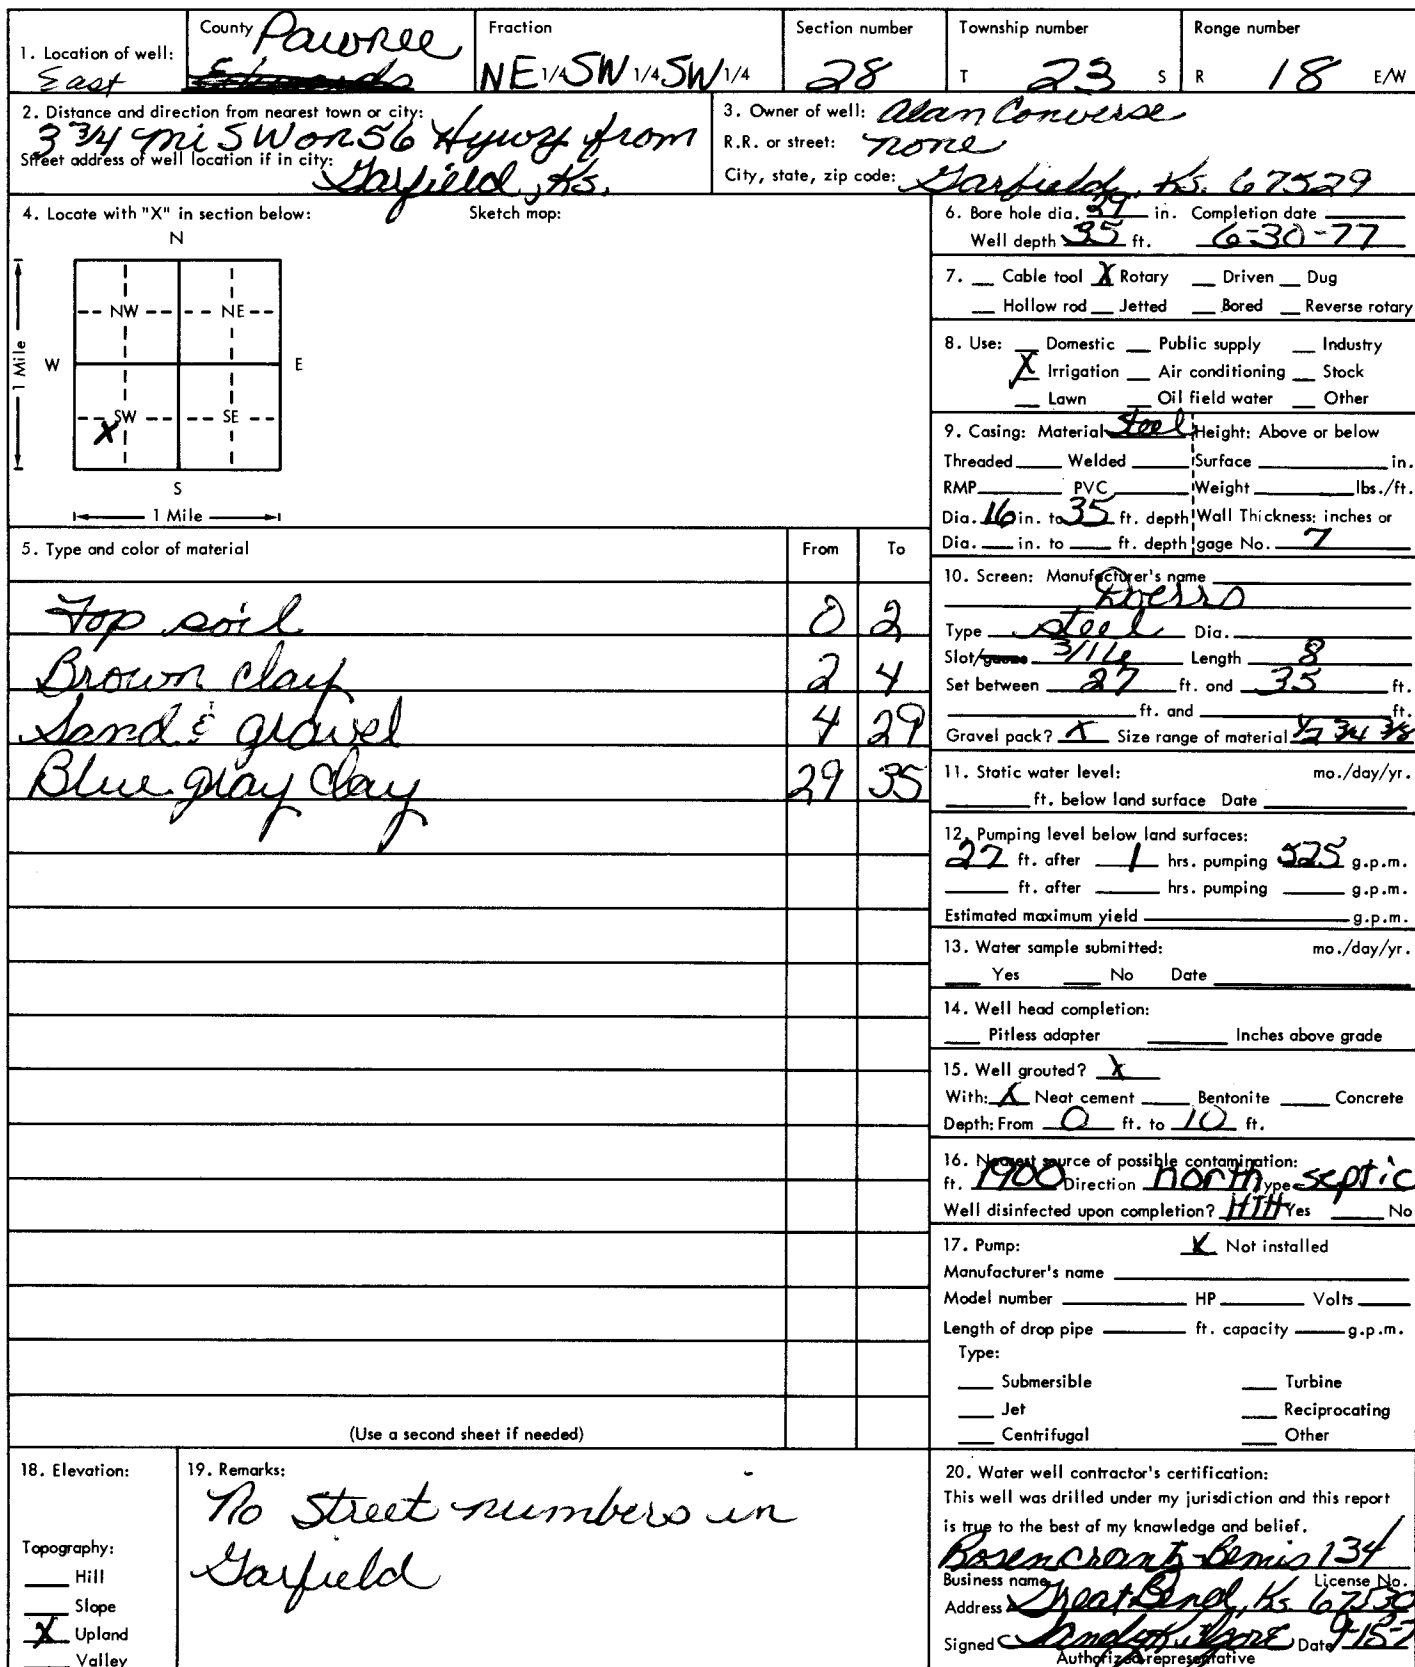 1. Location of well: East
County Pawnee
Fraction NE 1/4 SW 1/4 SW 1/4
Section number 28
Township number T 23 S
Range number R 18 E/W
2. Distance and direction from nearest town or city: 3 3/4 mi SW on 56 Hywy from
Street address of well location if in city: Garfield, Ks.
3. Owner of well: Alan Converse
R.R. or street: none
City, state, zip code: Garfield, Ks. 67529
4. Locate with "X" in section below:
Sketch map:
N
NW NE
W E
1 Mile
SW SE
X
S
1 Mile
5. Type and color of material From To
Top soil 0 2
Brown clay 2 4
Sand & gravel 4 29
Blue gray clay 29 35
(Use a second sheet if needed)
6. Bore hole dia. 29 in. Completion date
Well depth 35 ft. 6-30-77
7. __ Cable tool X Rotary __ Driven __ Dug
__ Hollow rod __ Jetted __ Bored __ Reverse rotary
8. Use: __ Domestic __ Public supply __ Industry
X Irrigation __ Air conditioning __ Stock
__ Lawn __ Oil field water __ Other
9. Casing: Material Steel Height: Above or below
Threaded ____ Welded ____ Surface ____ in.
RMP ____ PVC ____ Weight ____ lbs./ft.
Dia. 16 in. to 35 ft. depth Wall Thickness: inches or
Dia. __ in. to __ ft. depth gage No. 7
10. Screen: Manufacturer's name
Doerrs
Type steel Dia. ____
Slot/gauze 3/16 Length 8
Set between 27 ft. and 35 ft.
____ ft. and ____ ft.
Gravel pack? X Size range of material 1/2 3/4 3/8
11. Static water level: mo./day/yr.
____ ft. below land surface Date ____
12. Pumping level below land surfaces:
27 ft. after 1 hrs. pumping 525 g.p.m.
____ ft. after ____ hrs. pumping ____ g.p.m.
Estimated maximum yield ____ g.p.m.
13. Water sample submitted: mo./day/yr.
__ Yes __ No Date ____
14. Well head completion:
__ Pitless adapter ____ Inches above grade
15. Well grouted? X
With: X Neat cement ____ Bentonite ____ Concrete
Depth: From 0 ft. to 10 ft.
16. Nearest source of possible contamination:
ft. 1900 Direction north Type septic
Well disinfected upon completion? HTH Yes ____ No
17. Pump: X Not installed
Manufacturer's name ____
Model number ____ HP ____ Volts ____
Length of drop pipe ____ ft. capacity ____ g.p.m.
Type:
__ Submersible __ Turbine
__ Jet __ Reciprocating
__ Centrifugal __ Other
18. Elevation:
Topography:
__ Hill
__ Slope
X Upland
__ Valley
19. Remarks:
No Street numbers in
Garfield
20. Water well contractor's certification:
This well was drilled under my jurisdiction and this report
is true to the best of my knowledge and belief.
Rosencrantz-Bemis 134
Business name License No.
Address Great Bend, Ks. 67530
Signed Date 9-15-7
Authorized representative